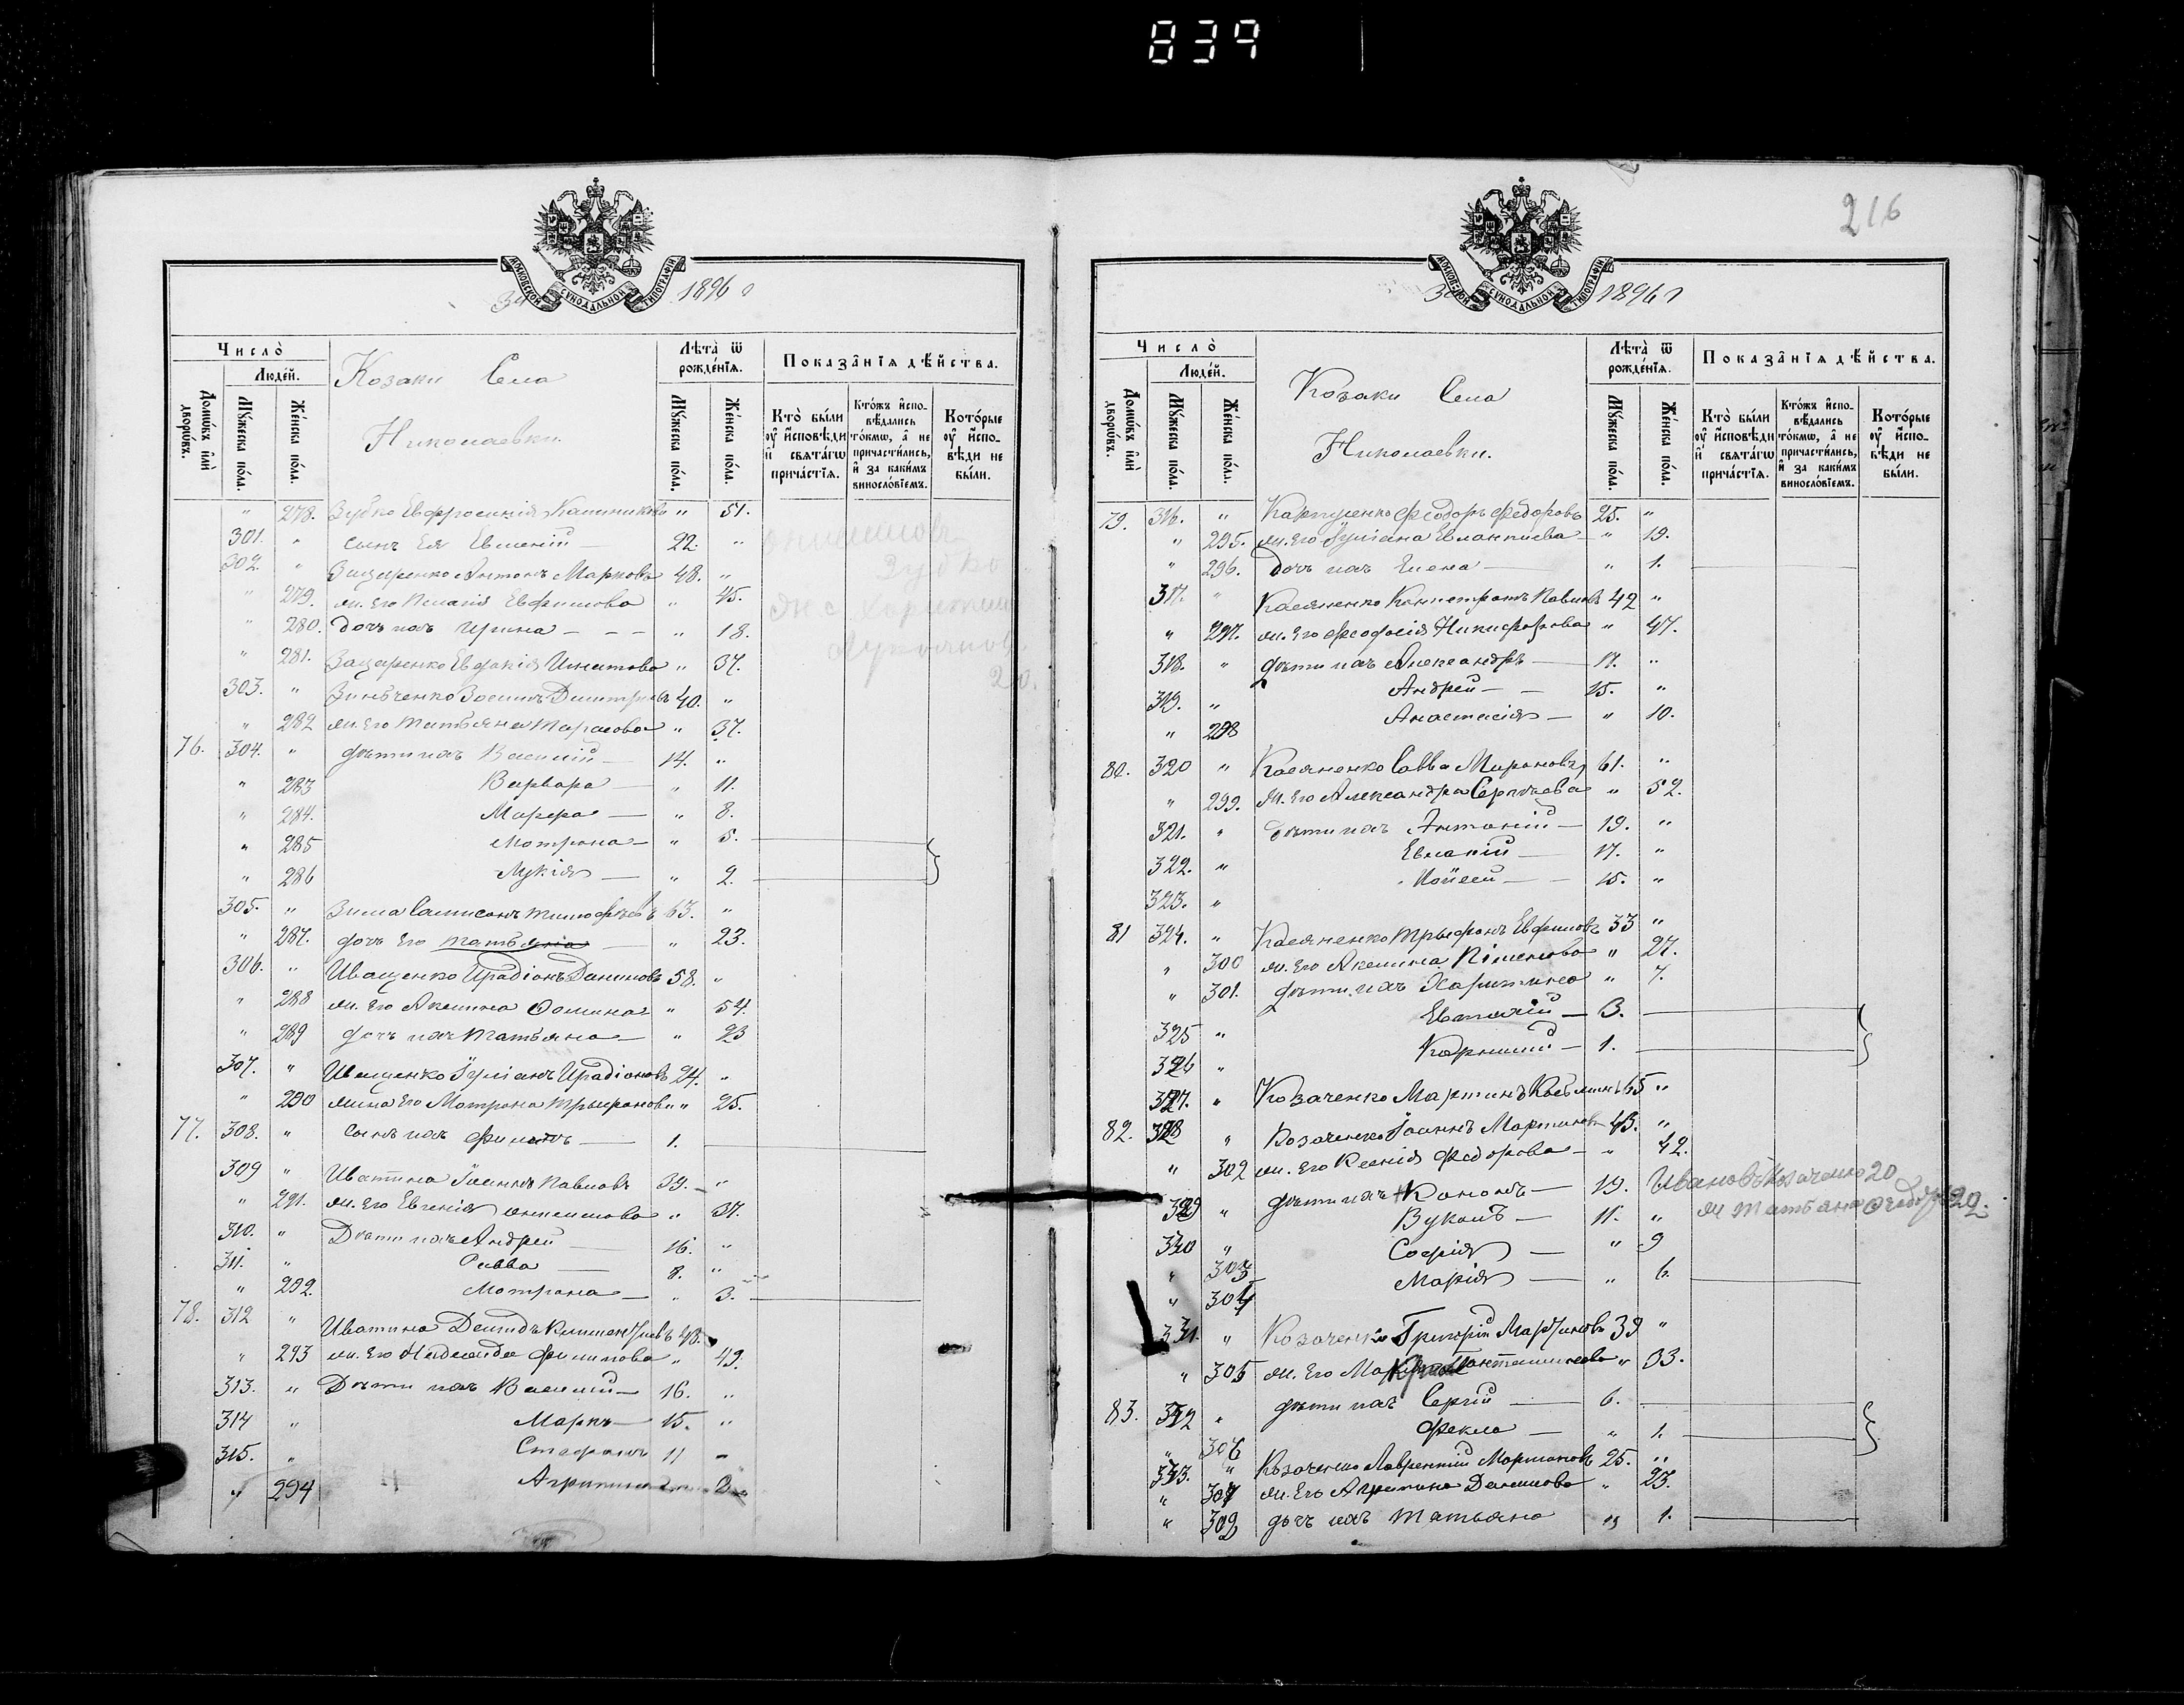 839
216
МОСКОВСКОЙ СѴНОДАЛЬНОЙ ТИПОГРАФІИ
За 1896 г
Число̀
Люде́й.
Домѡ́въ и҆лѝ дворѡ́въ.
Мꙋ́жеска по́ла.
Же́нска по́ла.
Козаки Села
Николаевки.
Лѣта̀ ѿ рожде́нїѧ.
Мꙋ́жеска по́ла.
Же́нска по́ла.
Показа̑нїѧ дѣ́йства.
Кто̀ бы́ли
ᲂу҆ и҆́сповѣди
и҆ свѧта́гѡ
прича́стїѧ.
Кто́жъ и҆спо-
вѣ́дались
то́кмѡ, а҆ не
причасти́лись,
и҆ за каки́мъ
винослов́їемъ.
Кото́рые
ᲂу҆ и҆́спо-
вѣди не
бы́ли.
" 278. Зубко Евфросинія Калиникова " 51.
301. " сынъ Ея Евменій — 22. "
302. " Захаренко Антонъ Марковъ 48. "
" 279. ж. его Пелагія Евфимова " 45.
" 280. дочь ихъ Ирина — — — " 18.
" 281. Захаренко Евдокія Игнатова " 37.
303. " Зинченко Зосимъ Димитріевъ 40. "
" 282 ж. его Татьяна Тарасова " 37.
76. 304. " дѣти ихъ Василій — 14. "
" 283 Варвара — " 11.
" 284. Марфа — " 8.
" 285 Мотрона — " 5.
" 286 Лукія — " 2.
305. " Зима Сампсонъ Тимофѣевъ 63. "
" 287. дочь его Татьяна — " 23.
306. " Иващенко Иродіонъ Даниловъ 58. "
" 288 ж. его Акилина Фомина " 54.
" 289 дочь ихъ Татьяна — " 23
307. " Иващенко Іуліанъ Иродіоновъ 24. "
" 290 жена его Мотрона Трифонова " 25.
77. 308. " сынъ ихъ Филиппъ — 1.
309 " Иватина Іоаннъ Павловъ 39. "
" 291. ж. его Евгенія Онисимова " 37.
310. " Дѣти ихъ Андрей — 16. "
311. " Савва — 8. "
" 292. Мотрона — " 3.
78. 312 " Иватина Демидъ Климентіевъ 48. "
" 293 ж. его Надежда Филиппова " 49.
313. " Дѣти ихъ Василій — 16. "
314 " Маркъ — 15. "
315. " Стефанъ 11 "
" 294 Агрипина
Зубко
ж. Харитина
20.
МОСКОВСКОЙ СѴНОДАЛЬНОЙ ТИПОГРАФІИ
За 1896 г
Число̀
Люде́й.
Домѡ́въ и҆лѝ дворѡ́въ.
Мꙋ́жеска по́ла.
Же́нска по́ла.
Козаки Села
Николаевки.
Лѣта̀ ѿ рожде́нїѧ.
Мꙋ́жеска по́ла.
Же́нска по́ла.
Показа̑нїѧ дѣ́йства.
Кто̀ бы́ли
ᲂу҆ и҆́сповѣди
и҆ свѧта́гѡ
прича́стїѧ.
Кто́жъ и҆спо-
вѣ́дались
то́кмѡ, а҆ не
причасти́лись,
и҆ за каки́мъ
винослов́їемъ.
Кото́рые
ᲂу҆ и҆́спо-
вѣди не
бы́ли.
79. 316. " Карпенко Феодоръ Федоровъ 25. "
" 295. ж. его Іуліана Евлампіева " 19.
" 296. дочь ихъ Елена — " 1.
317. " Касяненко Конпетратъ Павловъ 42 "
" 297. ж. его Феодосія Никифорова " 47.
318. " дѣти ихъ Александръ — 17. "
319. " Андрей — 15. "
" 298 Анастасія — " 10.
80. 320 " Касяненко Савва Мироновъ 61. "
" 299. ж. его Александра Сергіева " 52.
321. " дѣти ихъ Антоній — 19. "
322. " Евлогій — 17. "
323. " Моисей — 15. "
81 324. " Касяненко Трифонъ Евфимовъ 33 "
" 300 ж. его Акилина Піменова " 27.
" 301. дѣти ихъ Харитина " 7.
325 " Евстафій — 3.
326 " Корнилій — 1.
327. " Козаченко Мартинъ Косьминъ 65 "
82. 328 " Козаченко Іоаннъ Мартиновъ 43. "
" 302 ж. его Ксенія Федорова — " 42.
329 " дѣти ихъ Кононъ — 19. Ивановъ Козаченко 20
330 " Вуколъ — 11. " ж Татьяна Федор 20.
" 303 Софія — " 9
" 304 Марія — " 6.
331. " Козаченко Григорій Мартиновъ 39 "
" 305 ж. его Марія Пантелимонова " 33.
83. 332 " дѣти ихъ Сергій — 6.
" 306 Фекла — " 1.
333. " Козаченко Лаврентій Мартиновъ 25. "
" 307 ж. его Агрипина Данилова " 25.
" 309 дочь ихъ Татьяна " 1.